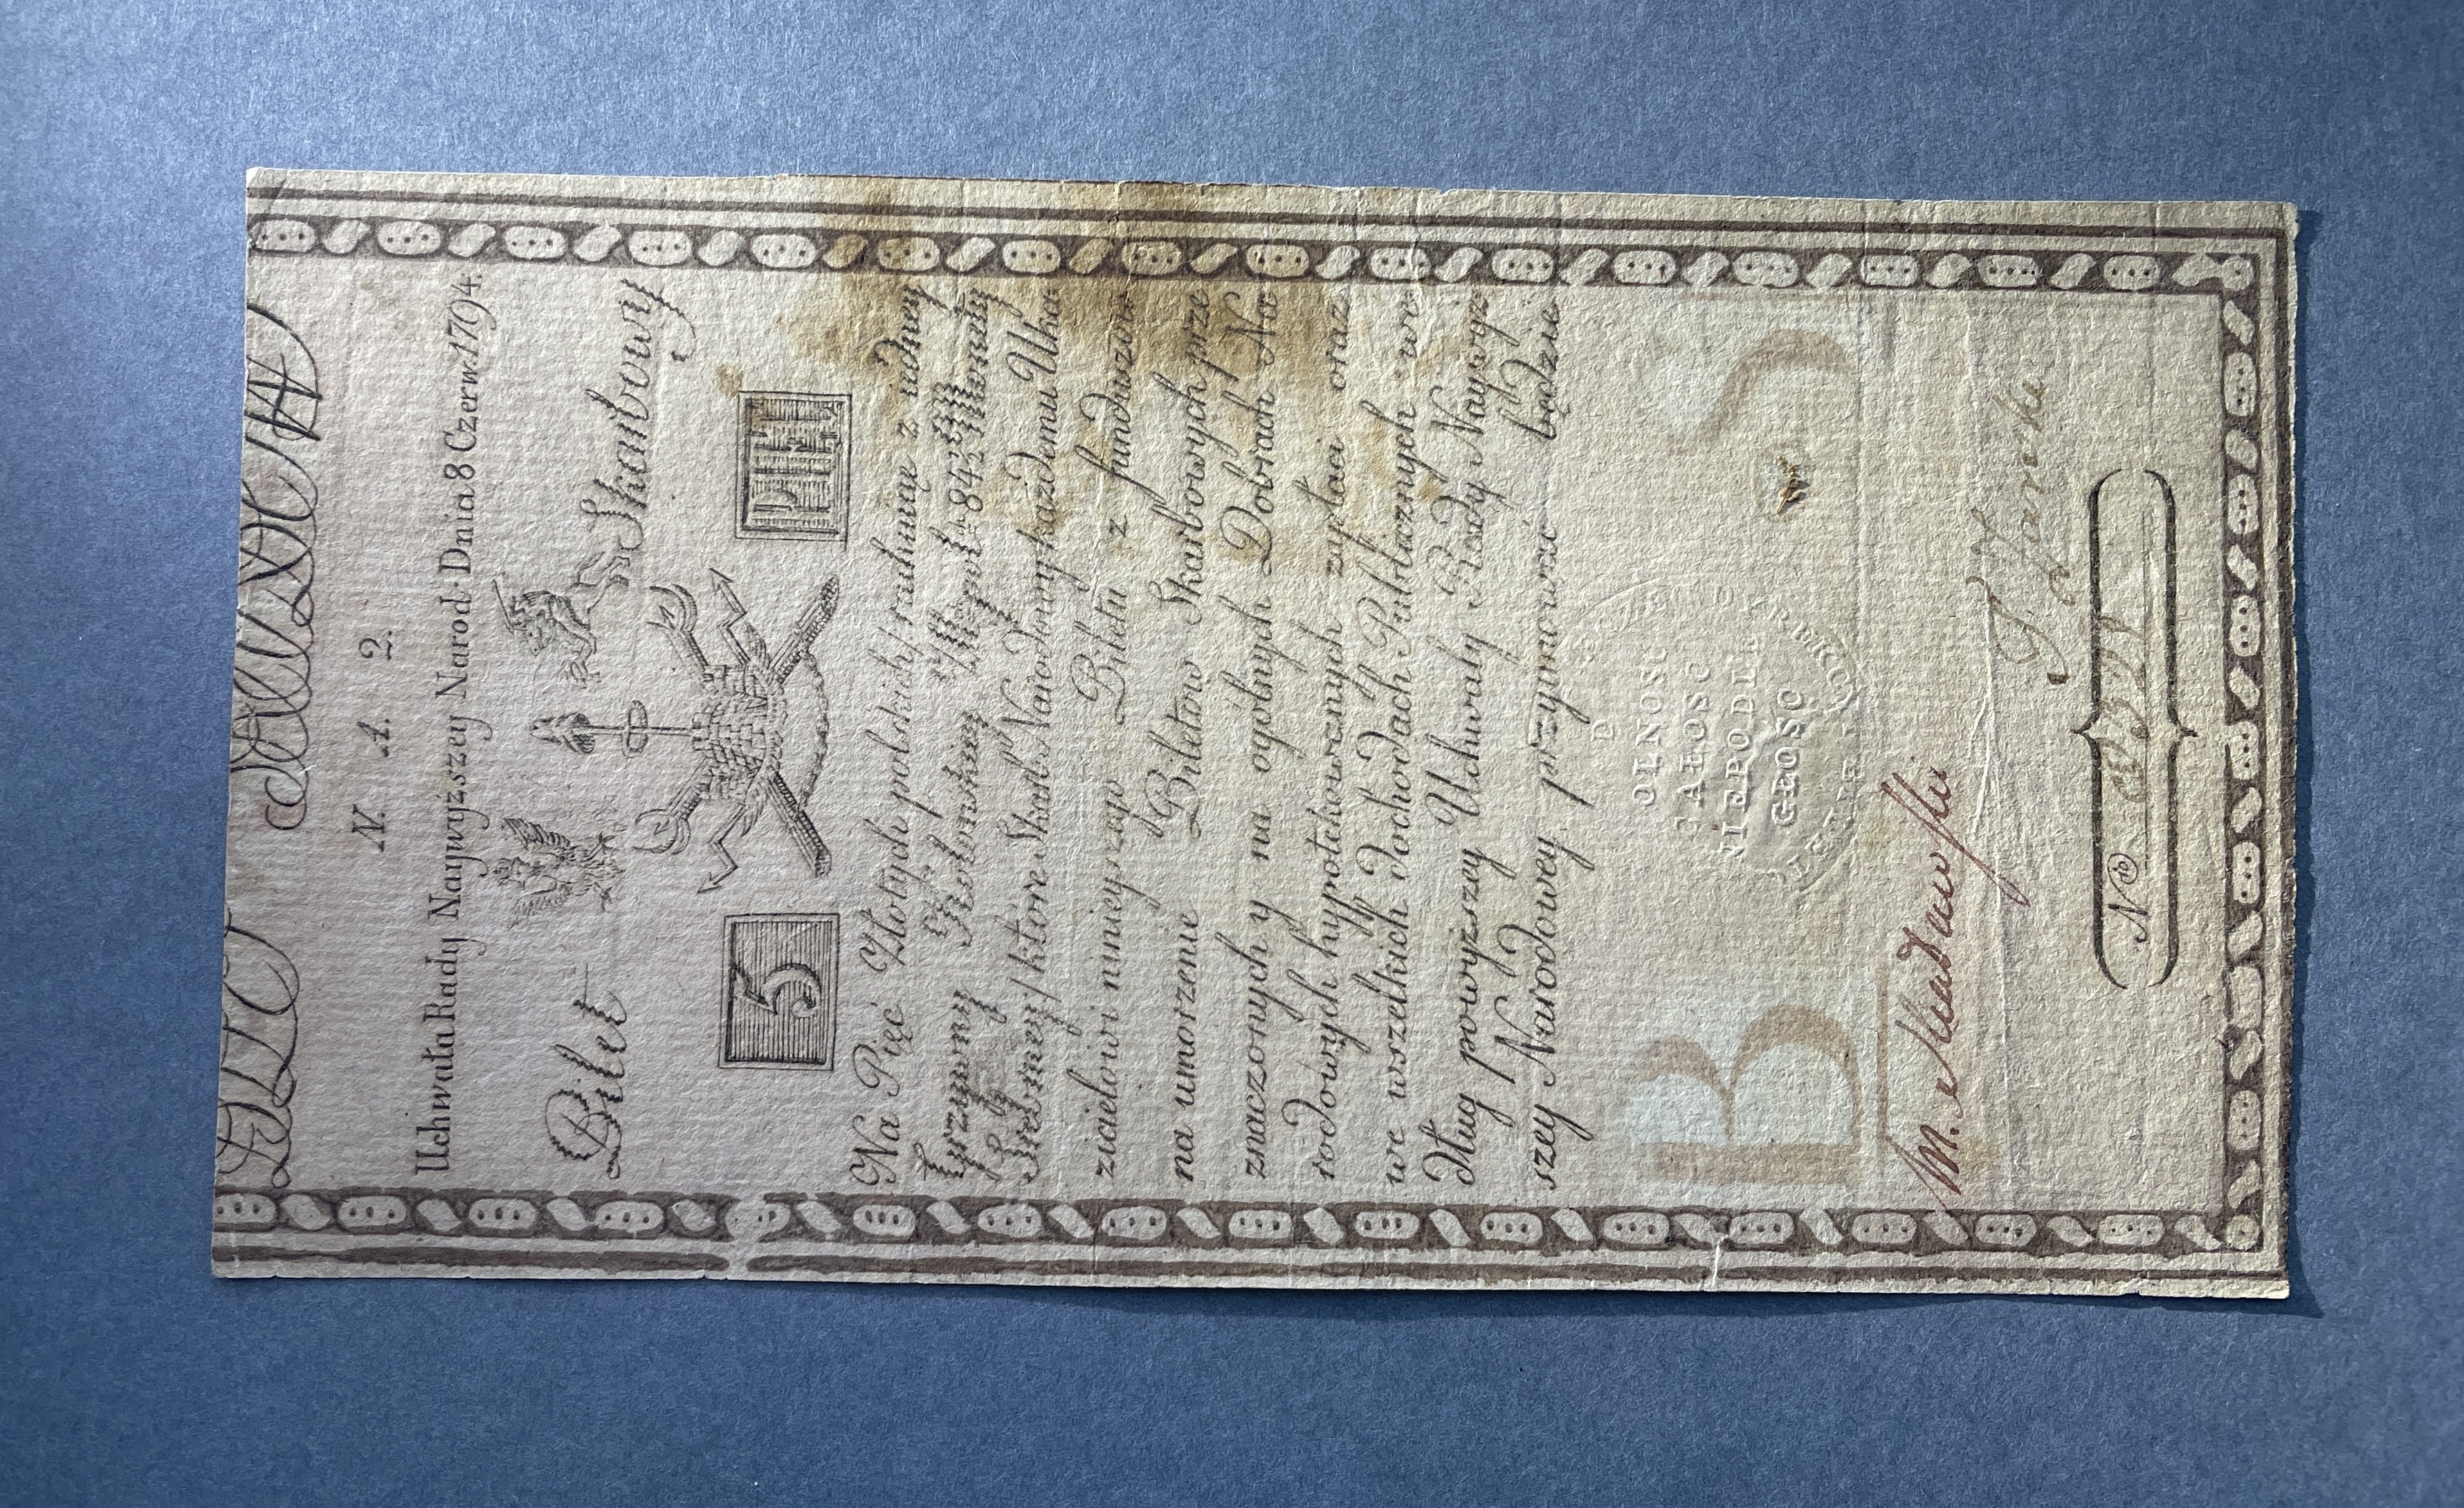 N. A. 2.
Uchwała Rady Naywyższey Narod: Dnia 8 Czerw: 1794.
Bilet Skarbowy
5 PIĘĆ
Na Pięć Złotych polskich/rachuiąc z iedney
grzywny Kolonskiey Zł: pol: 84½ Monety
Srebrney/które Skarb Narodowy każdemu Oka-
zicielowi ninieyszego Biletu z funduszów
na umorzenie Biletów Skarbowych prze
znaczonych y na ogólnych Dobrach Na
rodowych hypotekowanych zapłaci oraz
we wszelkich dochodach Publicznych we
dług powyższey Uchwały Rady Naywyż
szey Narodowey przyimować będzie
OLNOSC
CAŁOSC
NIEPODL
GŁOSC
N<sup>ro</sup>